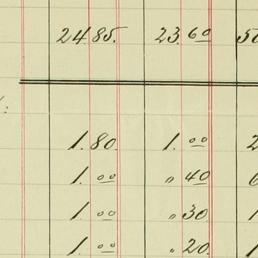 24 85. 23.60 50
1.80. 1.00 2
1.00 " 40 6
1 00 " 30 1
1.00 " 20. 1